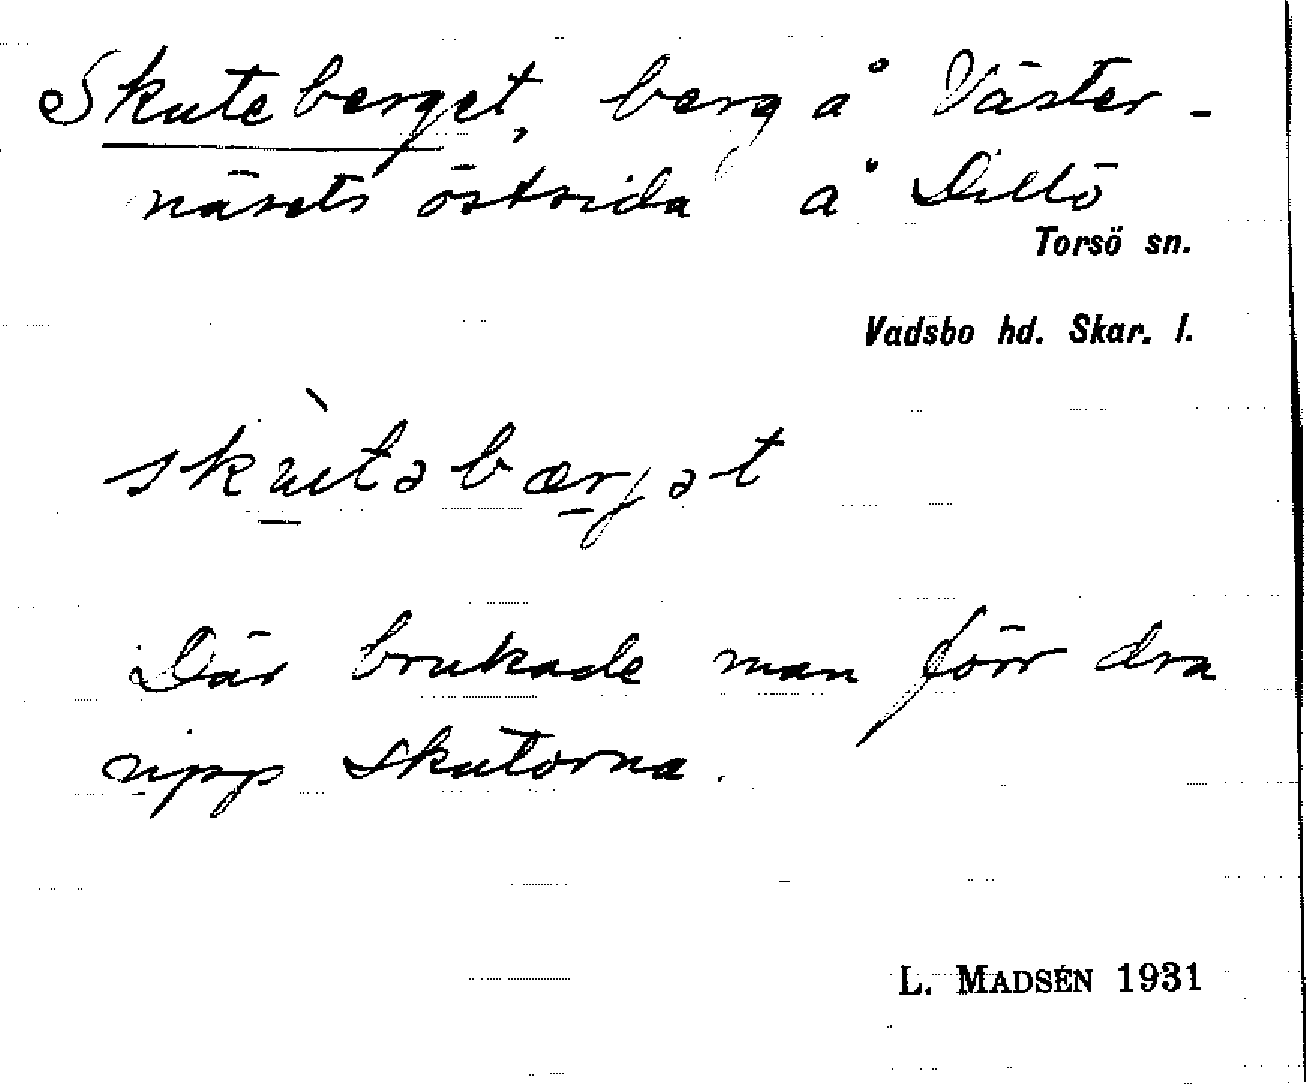 Skuteberget, berg å Väster-
näsets östsida å Dillö
Torsö sn.
Vadsbo hd. Skar. l.
skùtəbærjət
Där brukade man förr dra
upp skutorna.
L. MADSÉN 1931